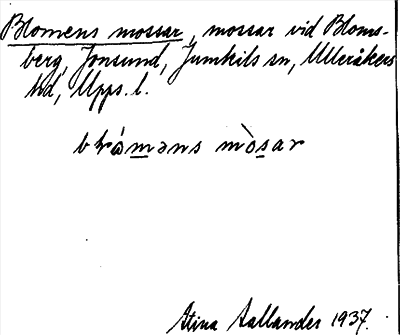 Blomens mossar, mossar vid Bloms-
berg, Jonsund, Jumkils sn, Ulleråkers
hd, Upps. l.
mòsar
Stina Aallander 1937.